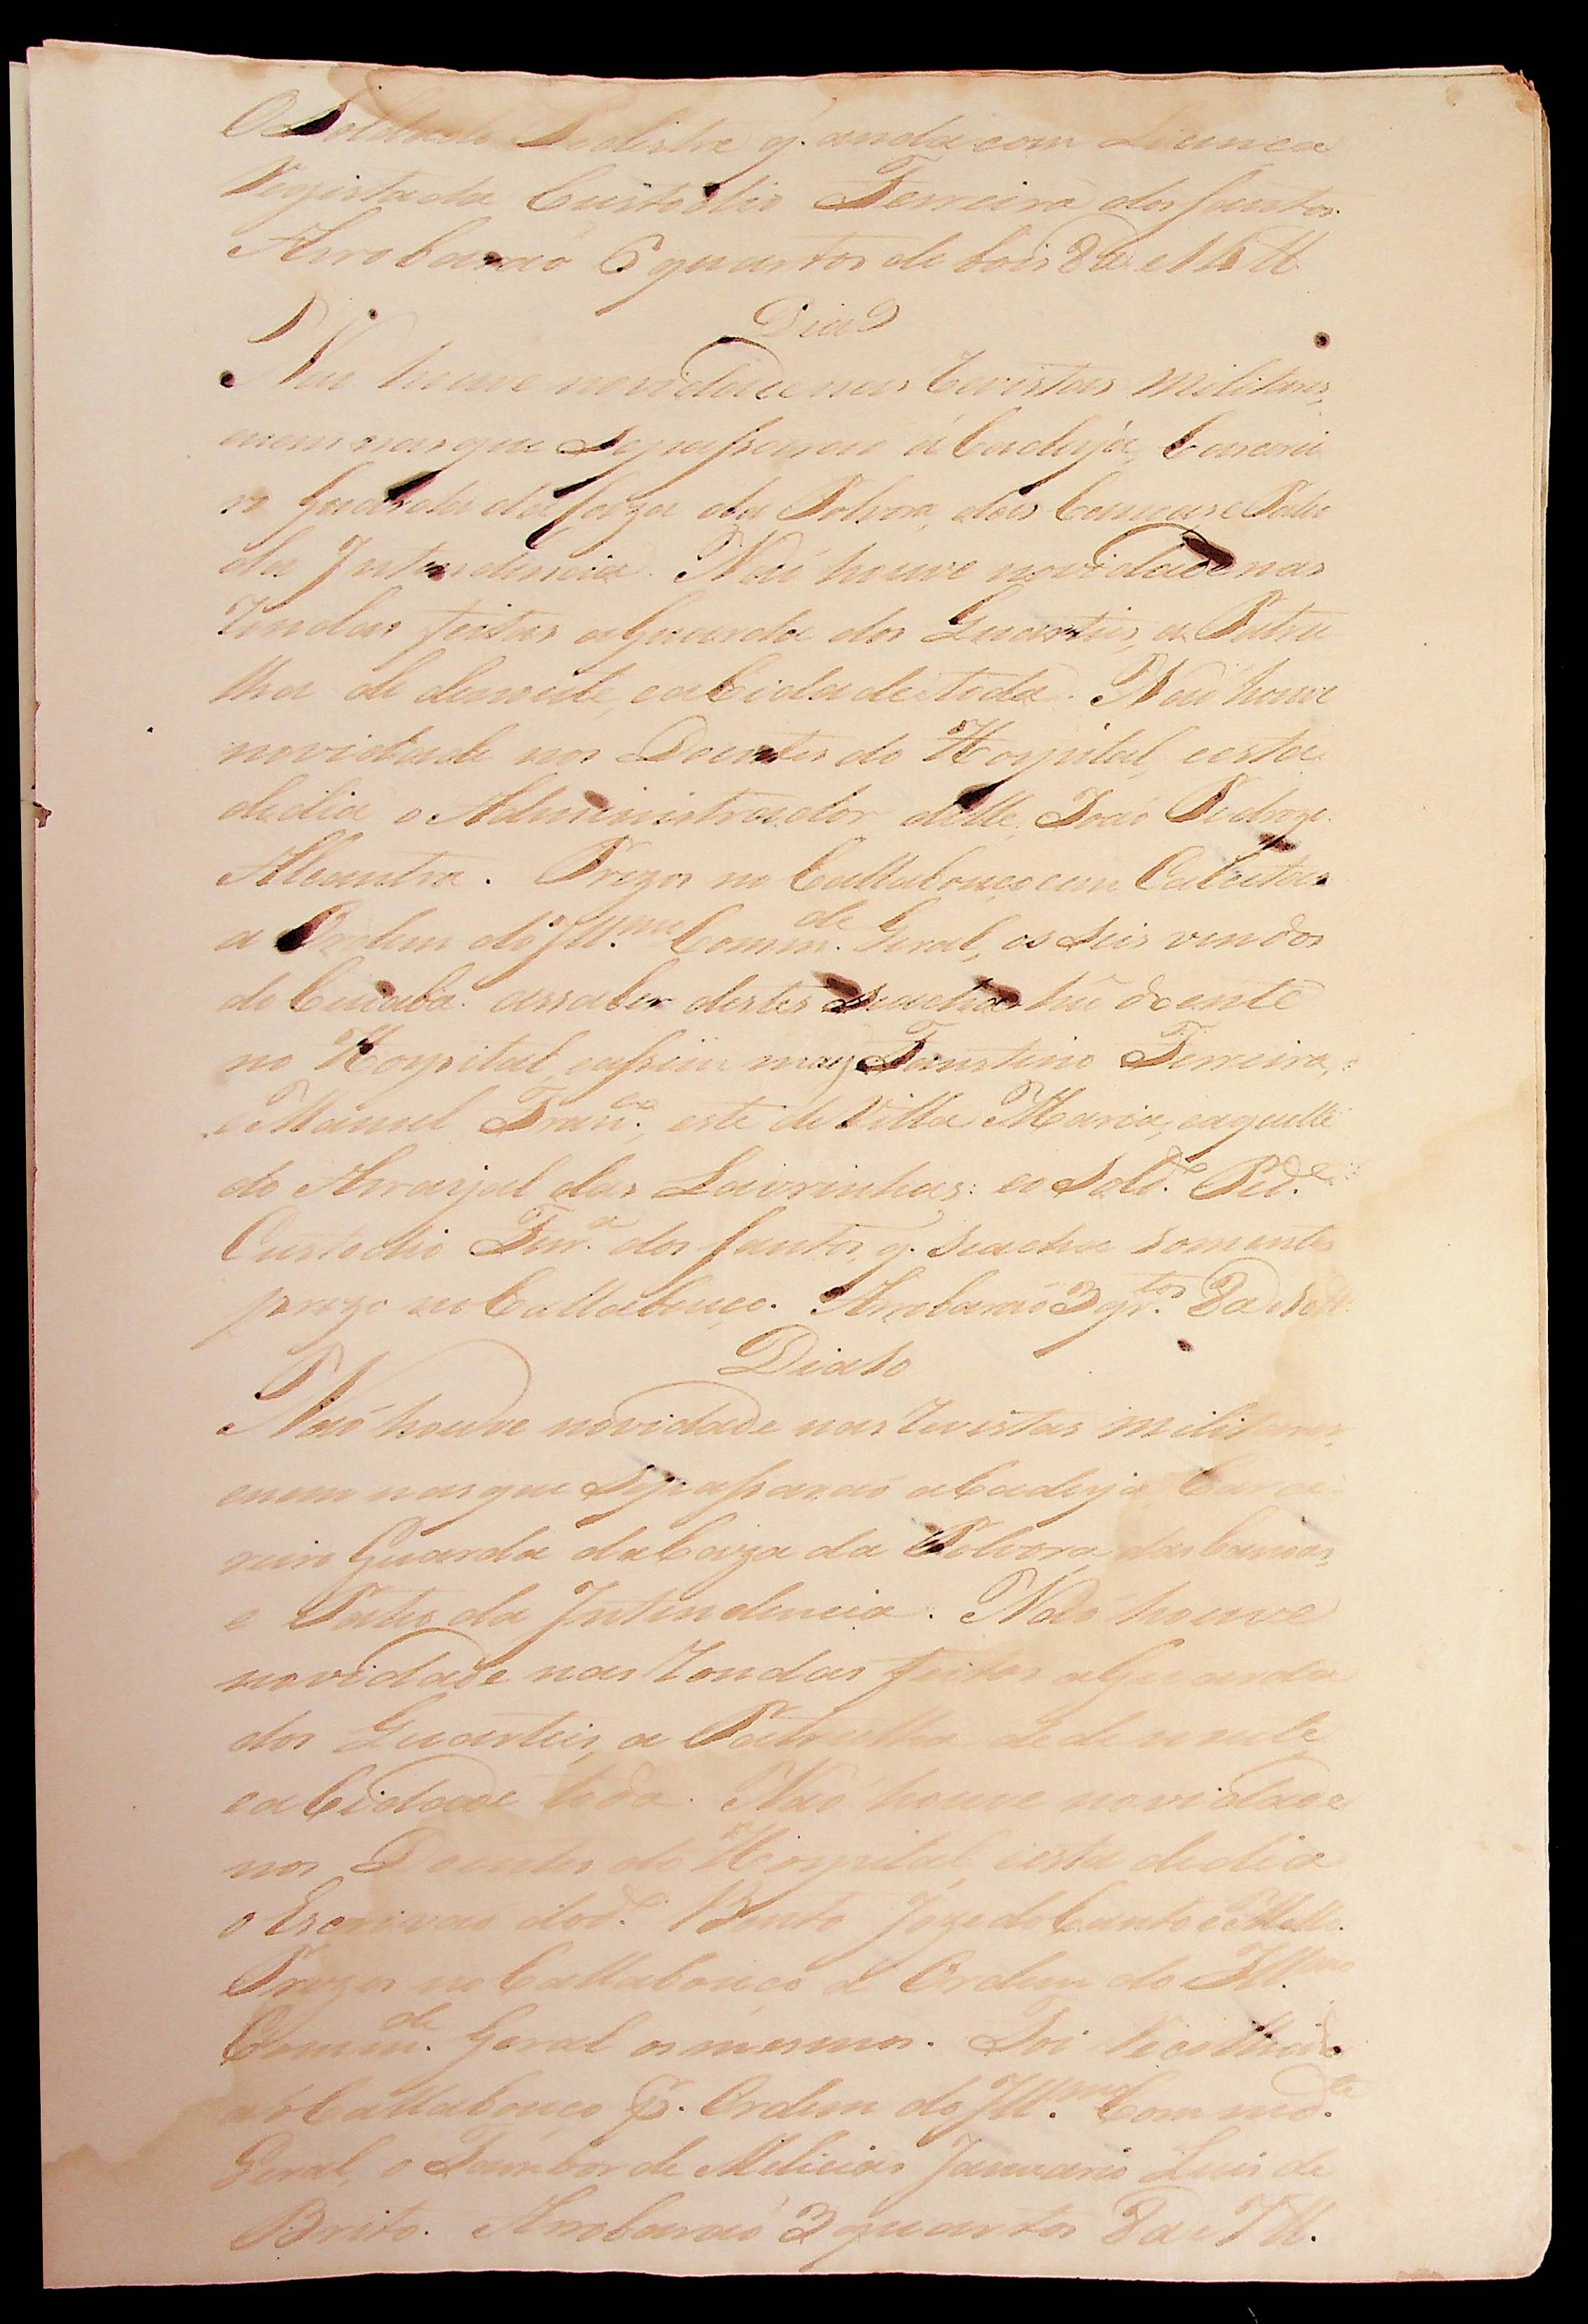 O Soldado Pedistre q. anda com Licença
Registada Custodio Ferreira dos Santos.
Arrobaraõ 6 quartos de bois 8@ e
Dia 9
Naõ houve novidade nas Revistas militares,
enem nas que se passaraõ á Cadeya, Carcerei
ro Guarda da Caza da Polvora, das Canoas e Patio
da Intendencia. Naõ houve novidade nas
Rondas feitas a Guarda dos Quarteis, a Patru
lha de, ea Cidade toda. Naõ houve
novidade nos Doentes do Hospital, eesta
dedia o Administrador delle, Joaõ Pedro
Alcantra. Prezos no Callabouço com Calcetas
a Ordem do Ill.mo Comm.de Geral, os seis vindos
do Cuiabá. assaber destes se acha hũ doente
no Hospital, eassim mais Faustino Ferreira,
e Manoel Fran.co, este de Villa Maria, eaquelle
do Arrayal das Lavrinhas: eo Sold.o Ped.e
Custodio Ferr.a dos Santos, q. seacha somente
prezo no Callabouço. Arrobaraõ 3 qr.tos 8@ e
Dia 10
Naõ houve novidade nas Revistas militares,
enem nas que se passaraõ a Cadeya Carce
reiro Guarda da Caza da Polvora, das Canoas,
e Patio da Intendencia. Naõ houve
novidade nas Rondas feitas a Guarda
dos Quarteis, a Patrulha de
ea Cidade toda. Naõ houve novidade
nos Doentes do Hospital, eesta dedia
o Escrivaõ do d.o Bento Joze do Canto e Mello.
Prezos no Callabouço a Ordem do Ill.mo
Comm.de Geral os mesmos. Foi Recolhido
ao Callabouço p. Ordem do Ill.mo Commd.te
Geral, o Tambor de Milicias Januario Luis de
Brito. Arrobaraõ 3 quartos 8@ e 7 ll.